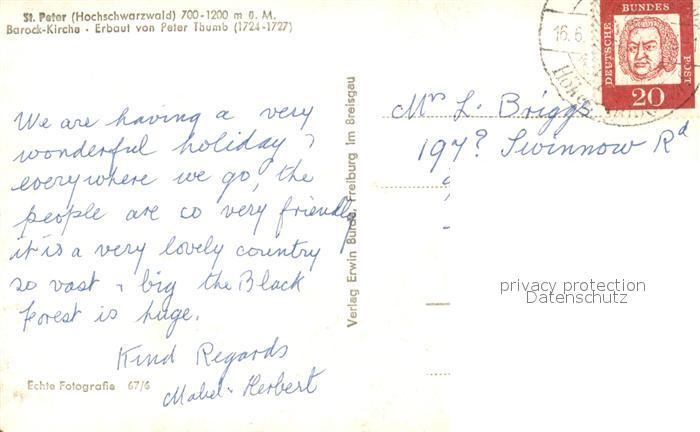 St. Peter (Hochschwarzwald) 700-1200 m ü. M.
Barock-Kirche · Erbaut von Peter Thumb (1724-1727)
We are having a very
wonderful holiday &
everywhere we go, the
people are so very friendly
it is a very lovely country
so vast & big the Black
Forest is huge.
Kind Regards
Mabel · Herbert
Echte Fotografie 67/6
Verlag Erwin Burda, Freiburg im Breisgau
16.6.
DEUTSCHE
BUNDES
POST
20
Mr L. Briggs
197? Swinnow Rd
privacy protection
Datenschutz